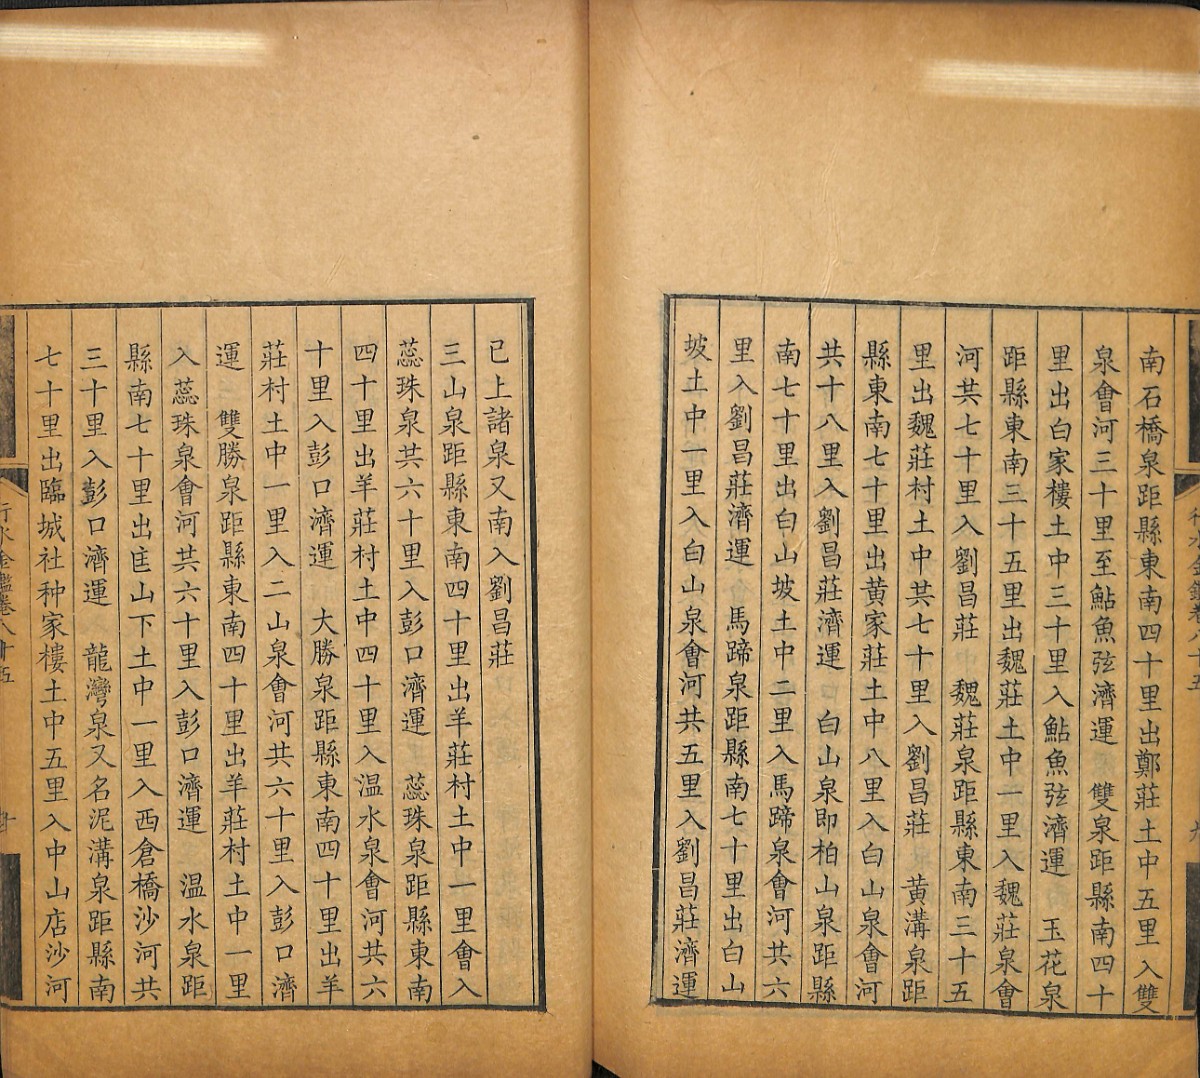 南石橋泉距縣東南四十里出鄭莊土中五里入雙
泉會河三十里至鮎魚弦濟運　雙泉距縣南四十
里出白家樓土中三十里入鮎魚弦濟運　玉花泉
距縣東南三十五里出魏莊土中一里入魏莊泉會
河共七十里入劉昌莊　魏莊泉距縣東南三十五
里出魏莊村土中共七十里入劉昌莊　黄溝泉距
縣東南七十里出黄家莊土中八里入白山泉會河
共十八里入劉昌莊濟運　白山泉即柏山泉距縣
南七十里出白山坡土中二里入馬蹄泉會河共六
里入劉昌莊濟運　馬蹄泉距縣南七十里出白山
坡土中一里入白山泉會河共五里入劉昌莊濟運
已上諸泉又南入劉昌莊
三山泉距縣東南四十里出羊莊村土中一里會入
蕊珠泉共六十里入彭口濟運　蕊珠泉距縣東南
四十里出羊莊村土中四十里入温水泉會河共六
十里入彭口濟運　大勝泉距縣東南四十里出羊
莊村土中一里入二山泉會河共六十里入彭口濟
運　雙勝泉距縣東南四十里出羊莊村土中一里
入蕊珠泉會河共六十里入彭口濟運　温水泉距
縣南七十里出𠥓山下土中一里入西倉橋沙河共
三十里入彭口濟運　龍灣泉又名泥溝泉距縣南
七十里出臨城社种家樓土中五里入中山店沙河
行水金鑑卷八十五